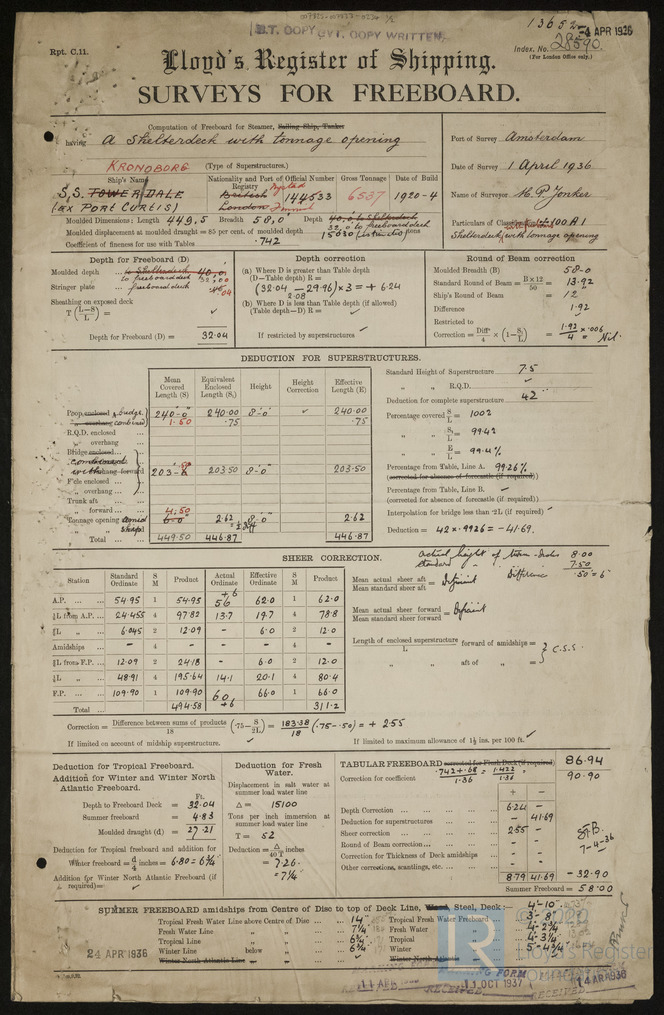 B.T. COPY
COPY WRITTEN
13652
4 APR 1936
Rpt. C.11.
Index. No. 28590
(For London Office only.)
Lloyd's Register of Shipping.
SURVEYS FOR FREEBOARD.
Computation of Freeboard for Steamer, Sailing Ship, Tanker
having a Shelterdeck with tonnage opening
(Type of Superstructures.)
KRONOBORG
Ship's Name
Nationality and Port of Registry
Official Number
Gross Tonnage
Date of Build
S.S. TOWER DALE
(ex PORT CURTIS)
British
London
144533
6537
1920-4
Port of Survey Amsterdam
Date of Survey 1 April 1936
Name of Surveyor
Particulars of Classification +100 A1
Shelterdeck with tonnage opening
Moulded Dimensions: Length 449,5 Breadth 58,0 Depth 40.0 to Shelterdeck
32,0 to freeboard deck
Moulded displacement at moulded draught = 85 per cent. of moulded depth 15030 tons
Coefficient of fineness for use with Tables .742
Depth for Freeboard (D)
Moulded depth ... to Shelterdeck 40,0
to freeboard deck 32,00
Stringer plate ... freeboard deck .04
Sheathing on exposed deck
T (L-S/L) =
Depth for Freeboard (D) = 32.04
Depth correction
(a) Where D is greater than Table depth
(D—Table depth) R =
(32.04 - 29.96) × 3 = + 6.24
2.08
(b) Where D is less than Table depth (if allowed)
(Table depth—D) R =
If restricted by superstructures
Round of Beam correction
Moulded Breadth (B) 58-0
Standard Round of Beam = B×12/50 = 13.92
Ship's Round of Beam = 12
Difference 1.92
Restricted to
Correction = Diff/4 × (1 - S/L) = 1.92/4 × .006 = Nil.
DEDUCTION FOR SUPERSTRUCTURES.
Mean Covered Length (S)
Equivalent Enclosed Length (S₁)
Height
Height Correction
Effective Length (E)
Poop enclosed & bridge 240-0 240.00 8-0 240.00
overhang combined 1.50 .75 .75
R.Q.D. enclosed
" overhang
Bridge enclosed
combined
with overhang forward 203-0 203.50 8-0 203.50
F'cle enclosed
" overhang
Trunk aft
" forward
Tonnage opening 4.50 2.62 8-0 2.62
Total ... 449.50 446.87 446.87
Standard Height of Superstructure 7.5
" " R.Q.D.
Deduction for complete superstructure 42
Percentage covered S/L = 100%
" " S₁/L = 99.42
" " E/L = 99.4%
Percentage from Table, Line A. 99.26%
(corrected for absence of forecastle (if required))
Percentage from Table, Line B.
(corrected for absence of forecastle (if required))
Interpolation for bridge less than ·2L (if required)
Deduction = 42 × .9926 = -41.69.
SHEER CORRECTION.
Station
Standard Ordinate
S M
Product
Actual Ordinate
Effective Ordinate
S M
Product
A.P. 54.95 1 54.95 56 +6 62.0 1 62.0
⅙L from A.P. 24.455 4 97.82 13.7 19.7 4 78.8
⅓L " 6.045 2 12.09 - 6.0 2 12.0
Amidships - 4 - - 4 -
⅓L from F.P. 12.09 2 24.18 - 6.0 2 12.0
⅙L " 48.91 4 195.64 14.1 20.1 4 80.4
F.P. 109.90 1 109.90 60 +6 66.0 1 66.0
Total 494.58 311.2
actual height of 8.00
standard 7.50
Difference .50 = 6
Mean actual sheer aft
Mean standard sheer aft = Deficient
Mean actual sheer forward
Mean standard sheer forward = Deficient
Length of enclosed superstructure forward of amidships =
L
" " aft of " =
C.S.S.
Correction = Difference between sums of products/18 (·75 - S/2L) = 183.38/18 (.75 - .50) = + 2.55
If limited on account of midship superstructure.
If limited to maximum allowance of 1½ ins. per 100 ft.
Deduction for Tropical Freeboard.
Addition for Winter and Winter North Atlantic Freeboard.
Ft.
Depth to Freeboard Deck = 32.04
Summer freeboard = 4.83
Moulded draught (d) = 27.21
Deduction for Tropical freeboard and addition for
Winter freeboard = d/4 inches = 6.80 = 6¾
Addition for Winter North Atlantic Freeboard (if required) =
Deduction for Fresh Water.
Displacement in salt water at summer load water line
Δ = 15100
Tons per inch immersion at summer load water line
T = 52
Deduction = Δ/40T inches
= 7.26
= 7¼
TABULAR FREEBOARD corrected for Flush Deck (if required) 86.94
Correction for coefficient .742+.68/1.36 = 1.422/1.36 = 90.90
+ -
Depth Correction 6.24 -
Deduction for superstructures - 41.69
Sheer correction 2.55 -
Round of Beam correction - -
Correction for Thickness of Deck amidships - -
Other corrections, scantlings, etc. - -
8.79 41.69 -32.90
Summer Freeboard = 58.00
7-4-36
SUMMER FREEBOARD amidships from Centre of Disc to top of Deck Line, Wood, Steel, Deck:— 4'-10"
Tropical Fresh Water Line above Centre of Disc 14"
Fresh Water Line " " 7¼
Tropical Line " " 6¾
Winter Line below " 6¾
Winter North Atlantic Line " "
Tropical Fresh Water Freeboard 3'-8"
Fresh Water " 4'-2¾
Tropical " 4'-3¼
Winter " 5'-4¾
Winter North Atlantic "
24 APR 1936
LR
Lloyd's Register
11 OCT 1937
14 APR 1936
RECEIVED
RECEIVED